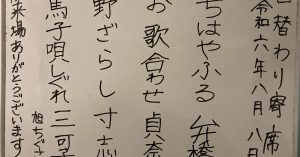 日替わり寄席
令和六年八月八日
ちはやふる 弁橋
お歌合わせ 貞奈
野ざらし 寸志
馬子唄しぐれ 三可子
旭ちぐさ
来場ありがとうございます